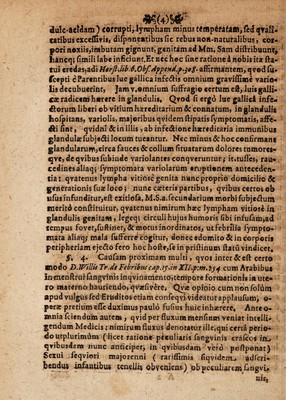 (4)
dulc-acidam) corrupti, lympham minus temperatam, sed qvali-
tatibus excessivis, disponentibus sic rebus non-naturalibus, cor-
pori noxiis, imbutam gignunt, genitam ad Mm, Sam distribunt,
hancq; simili labe inficiunt. Et nec hoc sine ratione à nobis ita sta-
tui credas, adi Horstii lib. Obs. Append. p. 305. affirmantem, qvod su-
scepti è Parentibus lue gallica infectis omnium gravissimè variò-
lis decubuerint, Jam v. omnium suffragio certum est, luis galli-
cæ radicem hærere in glandulis. Qvod si ergò lue gallicâ infe-
ctorum liberi ob vitium hæreditarium & connatum, in glandulis
hospitans, variolis, majoribus qvidem stipatis symptomatis, affe-
cti sint, qvidni & in illis, ab infectione hæreditaria immunibus
glandulæ subjecti locum tueantur. Nec minus & hoc confirmant
glandularum, circa fauces & collum situatarum dolores tumores-
qve, de qvibus subinde variolantes conqveruntur; it. tusses, rau-
cedines aliaq; symptomata variolarum eruptionem antecedentia
qvatenus lympha vitiosè genita nunc proprio domicilio &
generationis suæ loco; nunc cæteris partibus, qvibus certos ob
usus infunditur, est exitiosa, M. S. a. secundarium morbi subjectum
meritò constituitur, qvatenus nimirum hæc lympham vitiosè in
glandulis genitam, legeq; circuli hujus humoris sibi infusam, ad
tempus fovet, sustinet, & motus inordinatos, ut febrilia sympto-
mata aliaq; mala sufferre cogitur, donec edomito & in corporis
peripheriam ejecto fero hoc hoste, se in pristinum statũ vindicet,
§. 4. Causam proximam multi, qvos inter & est certo
modo D. Willis Tr. de Febribus cap. 15. in XII. p. m. 314 cum Arabibus
in menstrui sangvinis inqvinamento, tempore formationis in ute-
ro materno hauriendo, qvæsivêre. Qvæ opinio cum non solùm
apud vulgus sed Eruditos etiam conseqvi videatur applausum, o-
peræ pretium esse duximus paulò fusius huic inhærere. Ante o-
mnia sciendum autem, qvid per fluxum mensium veniat intelli-
gendum Medicis: nimirum fluxus denotatur ille, qui certâ perio-
do utplurimum (licet ratione peculiaris sangvinis crasceos in
qvibusdam nunc anticiper, in qvibusdam verò postponat)
Sexui seqviori majorenni (rarissimis siqvidem adscri-
bendus infantibus tenellis obveniens) ob peculiarem sangvi-
nis,